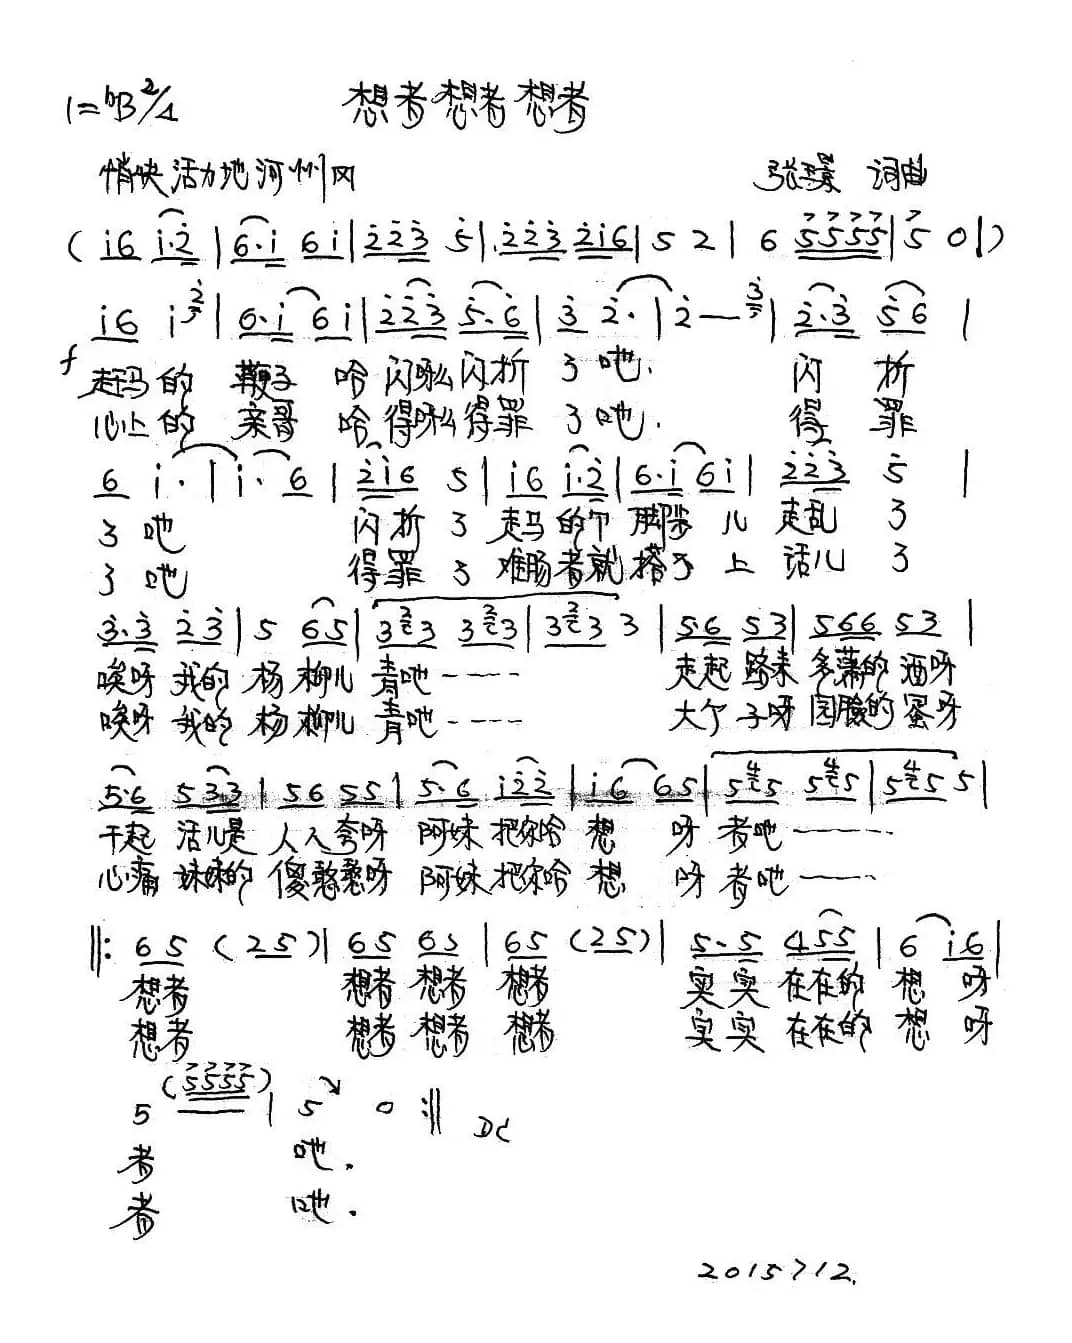 1=ᵇB 2/4 想者想者想者
悄快活力地河州风 张璟 词曲
( i6 i·2 | 6·i 6i | 223 5 | 223 2i6 | 5 2 | 6 5555 | 5 0 | )
i6 i 2 | 6·i 6i | 223 5·6 | 3 2· | 2 — 3 | 2·3 56 |
f 走马的 鞭子 哈 闪呦么闪折 了吔. 闪 折
心上的 亲哥 哈 得呦么得罪 了吔. 得 罪
6 i· | i· 6 | 2i6 5 | i6 i·2 | 6·i 6i | 223 5 |
了 吔 闪折 了 走马的个 脚步 儿 走乱 了
了 吔 得罪 了 难肠者就 搭了 上 话儿 了
3·3 23 | 5 65 | 3 2 3 3 2 3 | 3 2 3 3 | 5·6 53 | 566 53 |
唉呀 我的 杨 柳儿 青吔---- 走起 路来 多潇的 洒呀
唉呀 我的 杨 柳儿 青吔---- 大个 子呀 园脸的 蛋呀
5·6 533 | 56 55 | 5·6 i22 | i6 65 | 5 4 5 5 4 5 | 5 4 5 5 |
干起 活儿是 人人夸呀 阿妹 把你哈 想 呀 者吔------
心痛 妹妹的 傻憨憨呀 阿妹 把你哈 想 呀 者吔------
‖: 65 (25) | 65 65 | 65 (25) | 5·5 455 | 6 i6 |
想者 想者 想者 想者 实实 在在的 想 呀
想者 想者 想者 想者 实实 在在的 想 呀
5 (5555) | 5 0 :‖ DC
者 吔.
者 吔.
2015 7 12.